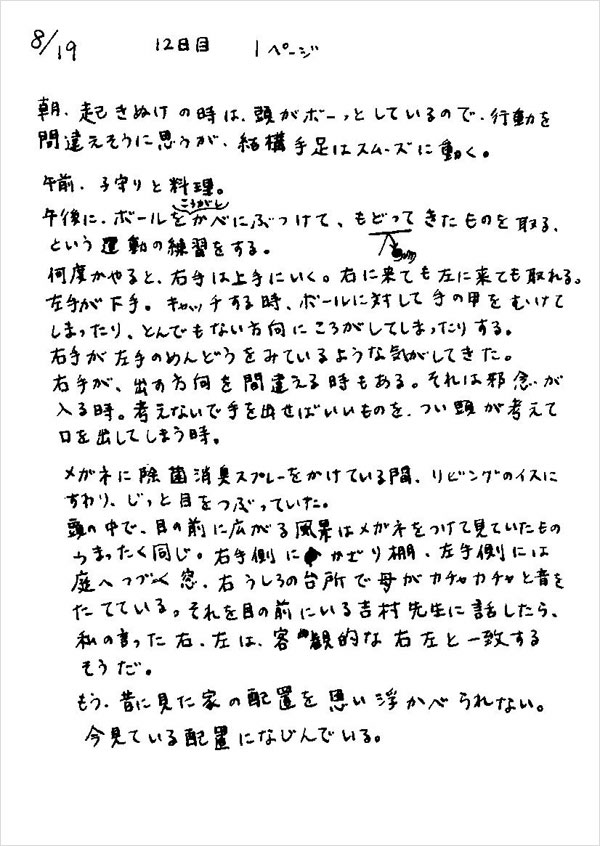 8/19　12日目　1ページ
朝、起きぬけの時は、頭がボーっとしているので、行動を
間違えそうに思うが、結構手足はスムーズに動く。
午前、子守りと料理。
ころがし
午後に、ボールをかべにぶつけて、もどってきたものを取る、
という運動の練習をする。
何度かやると、右手は上手にいく。右に来ても左に来ても取れる。
左手が下手。キャッチする時、ボールに対して手の甲をむけて
しまったり、とんでもない方向にころがしてしまったりする。
右手が左手のめんどうをみているような気がしてきた。
右手が、出す方向を間違える時もある。それは邪念が
入る時。考えないで手を出せばいいものを、つい頭が考えて
口を出してしまう時。
メガネに除菌消臭スプレーをかけている間、リビングのイスに
すわり、じっと目をつぶっていた。
頭の中で、目の前に広がる風景はメガネをつけて見ていたもの
とまったく同じ。右手側にかざり棚、左手側には
庭へつづく窓、右うしろの台所で母がカチャカチャと音を
たてている。それを目の前にいる吉村先生に話したら、
私の言った右、左は、客観的な右左と一致する
そうだ。
もう、昔に見た家の配置を思い浮かべられない。
今見ている配置になじんでいる。